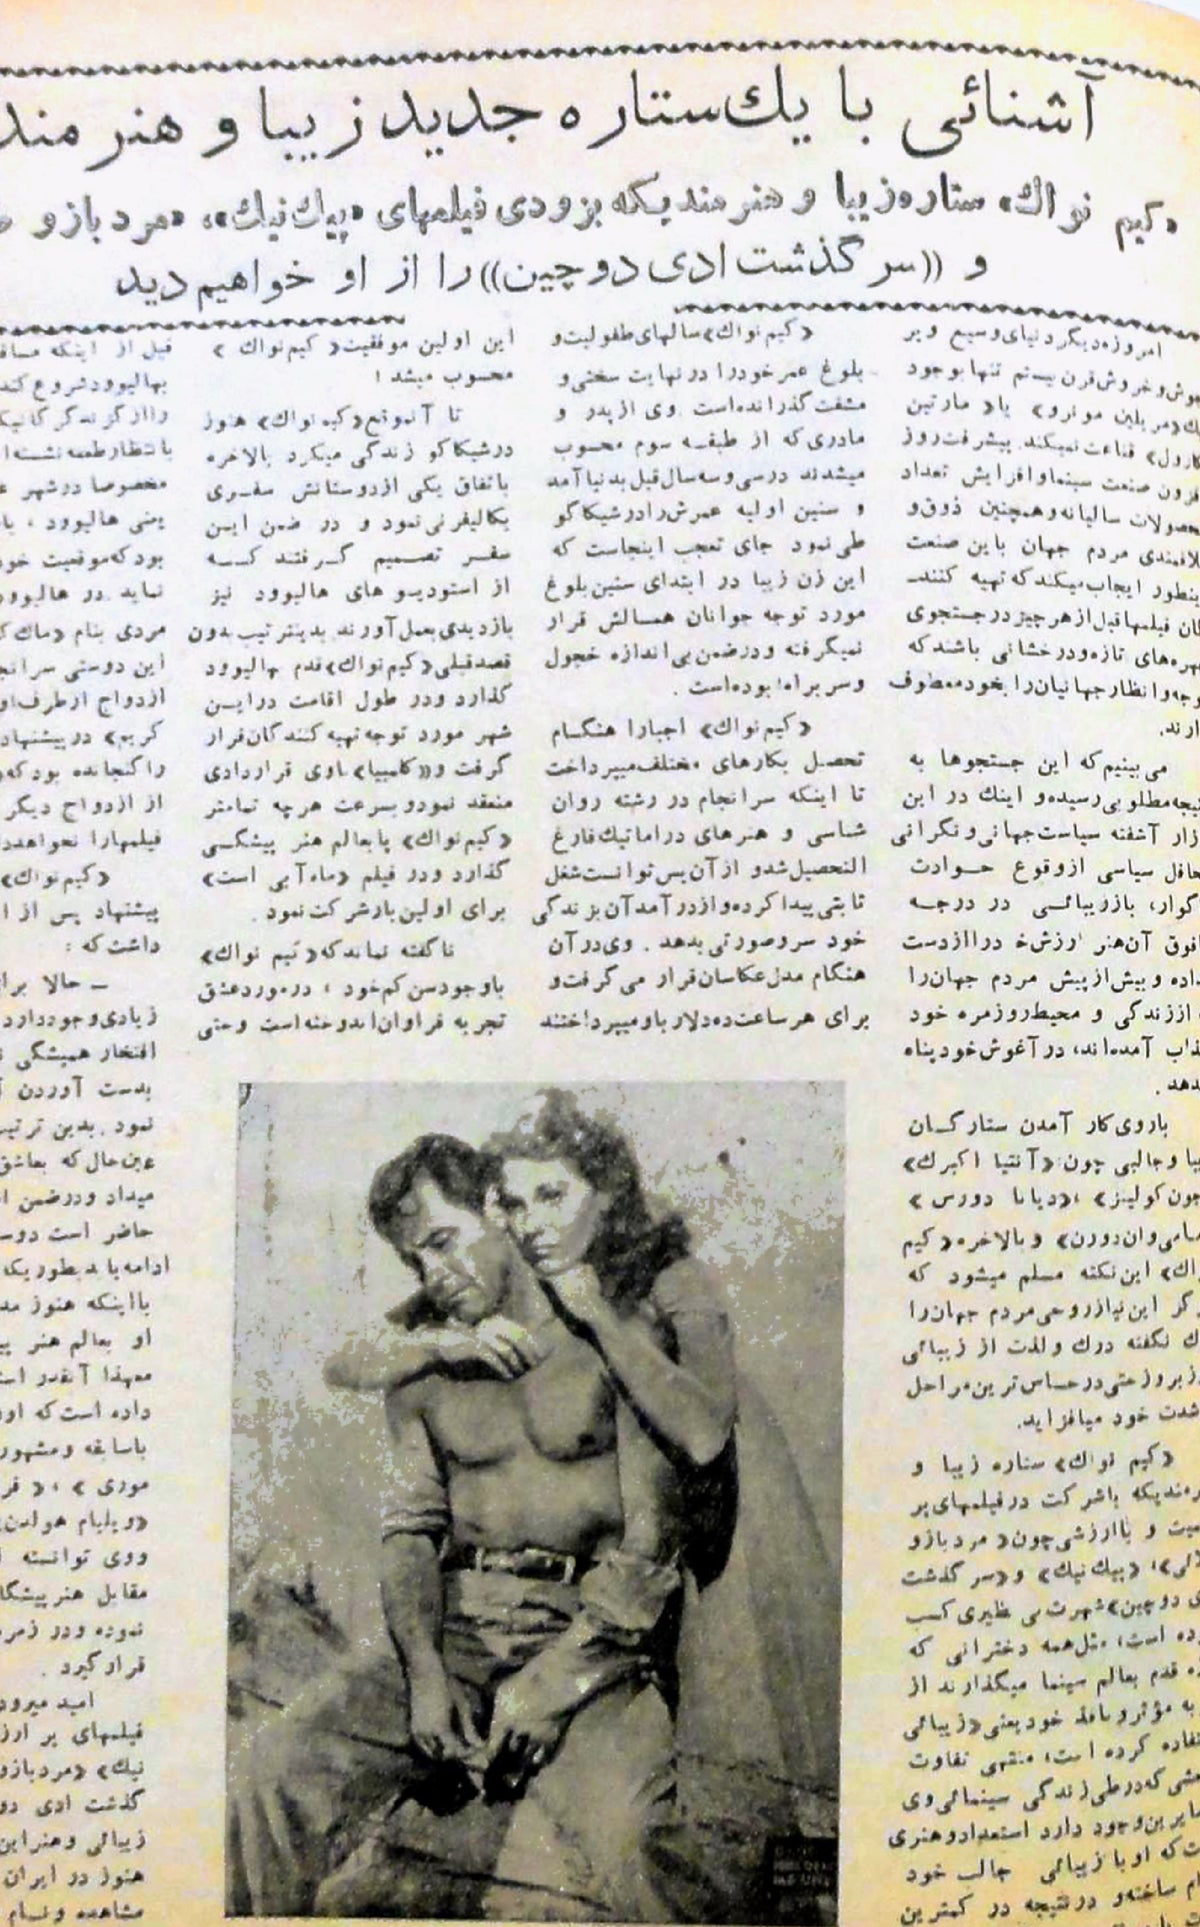 آشنائی با یك ستاره جدید زیبا و هنرمند
«کیم نواك» ستاره زیبا و هنرمندیکه بزودی فیلمهای «پیك نیك»، «مرد بازو
و ((سرگذشت ادی دوچین)) را از او خواهیم دید
امروزه دیگر دنیای وسیع و پر
جوش و خروش قرن بیستم تنها بوجود
یك «مریلین مونرو» یا «مارتین
کارول» قناعت نمیکند. پیشرفت روز
افزون صنعت سینما و افزایش تعداد
محصولات سالیانه و همچنین ذوق و
علاقمندی مردم جهان باین صنعت
اینطور ایجاب میکند که تهیه کنند-
گان فیلمها قبل از هر چیز در جستجوی
چهره‌های تازه و درخشانی باشند که
توجه و انظار جهانیان را بخود معطوف
دارند.
می‌بینیم که این جستجوها به
نتیجه مطلوبی رسیده و اینك در این
بازار آشفته سیاست جهانی و نگرانی
محافل سیاسی از وقوع حوادث
ناگوار، باز زیبائی در درجه
مافوق آن هنر ارزش خود را از دست
نداده و بیش از پیش مردم جهان را
که از زندگی و محیط روزمره خود
بعذاب آمده‌اند، در آغوش خود پناه
میدهد.
با روی کار آمدن ستارگان
زیبا و جالبی چون: «آنتیا اکبرك»
«جون کولینز»، «دیانا دورس»
«مامی وان دورن» و بالاخره «کیم
نواك» این نکته مسلم میشود که
دیگر این نیاز روحی مردم جهان را
ترك نگفته درك و لذت از زیبائی
روز بروز حتی در حساس‌ترین مراحل
بشدت خود میافزاید.
«کیم نواك» ستاره زیبا و
هنرمندیکه با شرکت در فیلمهای پر
و با ارزشی چون «مرد بازو
طلائی»، «پیك نیك» و «سرگذشت
ادی دوچین» شهرت بی نظیری کسب
کرده است، مثل همه دخترانی که
قدم بعالم سینما میگذارند از
به مؤثر و نافذ خود یعنی «زیبائی
استفاده کرده است، منتهی تفاوت
که در طی زندگی سینمائی وی
سایرین وجود دارد استعداد و هنری
است که او با زیبائی جالب خود
توام ساخته و در نتیجه در کمترین
«کیم نواك» سالهای طفولیت و
بلوغ عمر خود را در نهایت سختی و
مشقت گذرانده است. وی از پدر و
مادری که از طبقه سوم محسوب
میشدند در سی و سه سال قبل بدنیا آمد
و سنین اولیه عمرش را در شیکاگو
طی نمود جای تعجب اینجاست که
این زن زیبا در ابتدای سنین بلوغ
مورد توجه جوانان همسالش قرار
نمیگرفته و در ضمن بی‌اندازه خجول
و سر براه! بوده است.
«کیم نواك» اجبارا هنگام
تحصیل بکارهای مختلف میپرداخت
تا اینکه سرانجام در رشته روان
شناسی و هنرهای دراماتیك فارغ
التحصیل شد و از آن پس توانست شغل
ثابتی پیدا کرده و از درآمد آن بزندگی
خود سر و صورتی بدهد. وی در آن
هنگام مدل عکاسان قرار می‌گرفت و
برای هر ساعت ده دلار باو میپرداختند
این اولین موفقیت «کیم نواك»
محسوب میشد!
تا آنموقع «کیم نواك» هنوز
در شیکاگو زندگی میکرد بالاخره
باتفاق یکی از دوستانش سفری
بکالیفرنی نمود و در ضمن این
سفر تصمیم گرفتند که
از استودیو های هالیوود نیز
بازدیدی بعمل آورند بدینترتیب بدون
قصد قبلی «کیم نواك» قدم بهالیوود
گذارد و در طول اقامت در این
شهر مورد توجه تهیه کنندگان قرار
گرفت و «کلمبیا» با وی قراردادی
منعقد نمود و بسرعت هر چه تمامتر
«کیم نواك» پا بعالم هنر پیشگی
گذارد و در فیلم «ماه آبی است»
برای اولین بار شرکت نمود.
ناگفته نماند که «کیم نواك»
با وجود سن کم خود، در مورد عشق
تجربه فراوان اندوخته است و حتی
قبل از اینکه
بهالیوود شروع کند
بانتظار طعمه نشسته
مخصوصا در شهر
یعنی هالیوود،
بود که موقعیت خود
نماید در هالیوود
مردی بنام «ماك
این دوستی سرانجام
ازدواج از طرف او
کریم» در پیشنهاد
را گنجانده بود که
از ازدواج دیگر
فیلمها را نخواهد داد
«کیم نواك»
پیشنهاد پس از
داشت که:
— حالا برای
زیادی وجود دارد
افتخار همیشگی
بدست آوردن
نمود. بدین ترتیب
عین حال که بعاشق
میداد و در ضمن
حاضر است
ادامه یابد بطوریکه
با اینکه هنوز
او بعالم هنر
معهذا آنقدر
داده است که او
باسابقه و مشهور
موری»، «فر
«ویلیام هولدن»
و وی توانسته
مقابل هنرپیشگان
نموده و در زمره
قرار گیرد.
امید میرود
فیلمهای پر ارزش
نیك» «مرد بازو
گذشت ادی دو
زیبائی و هنر این
هنوز در ایران
مشاهده و نام